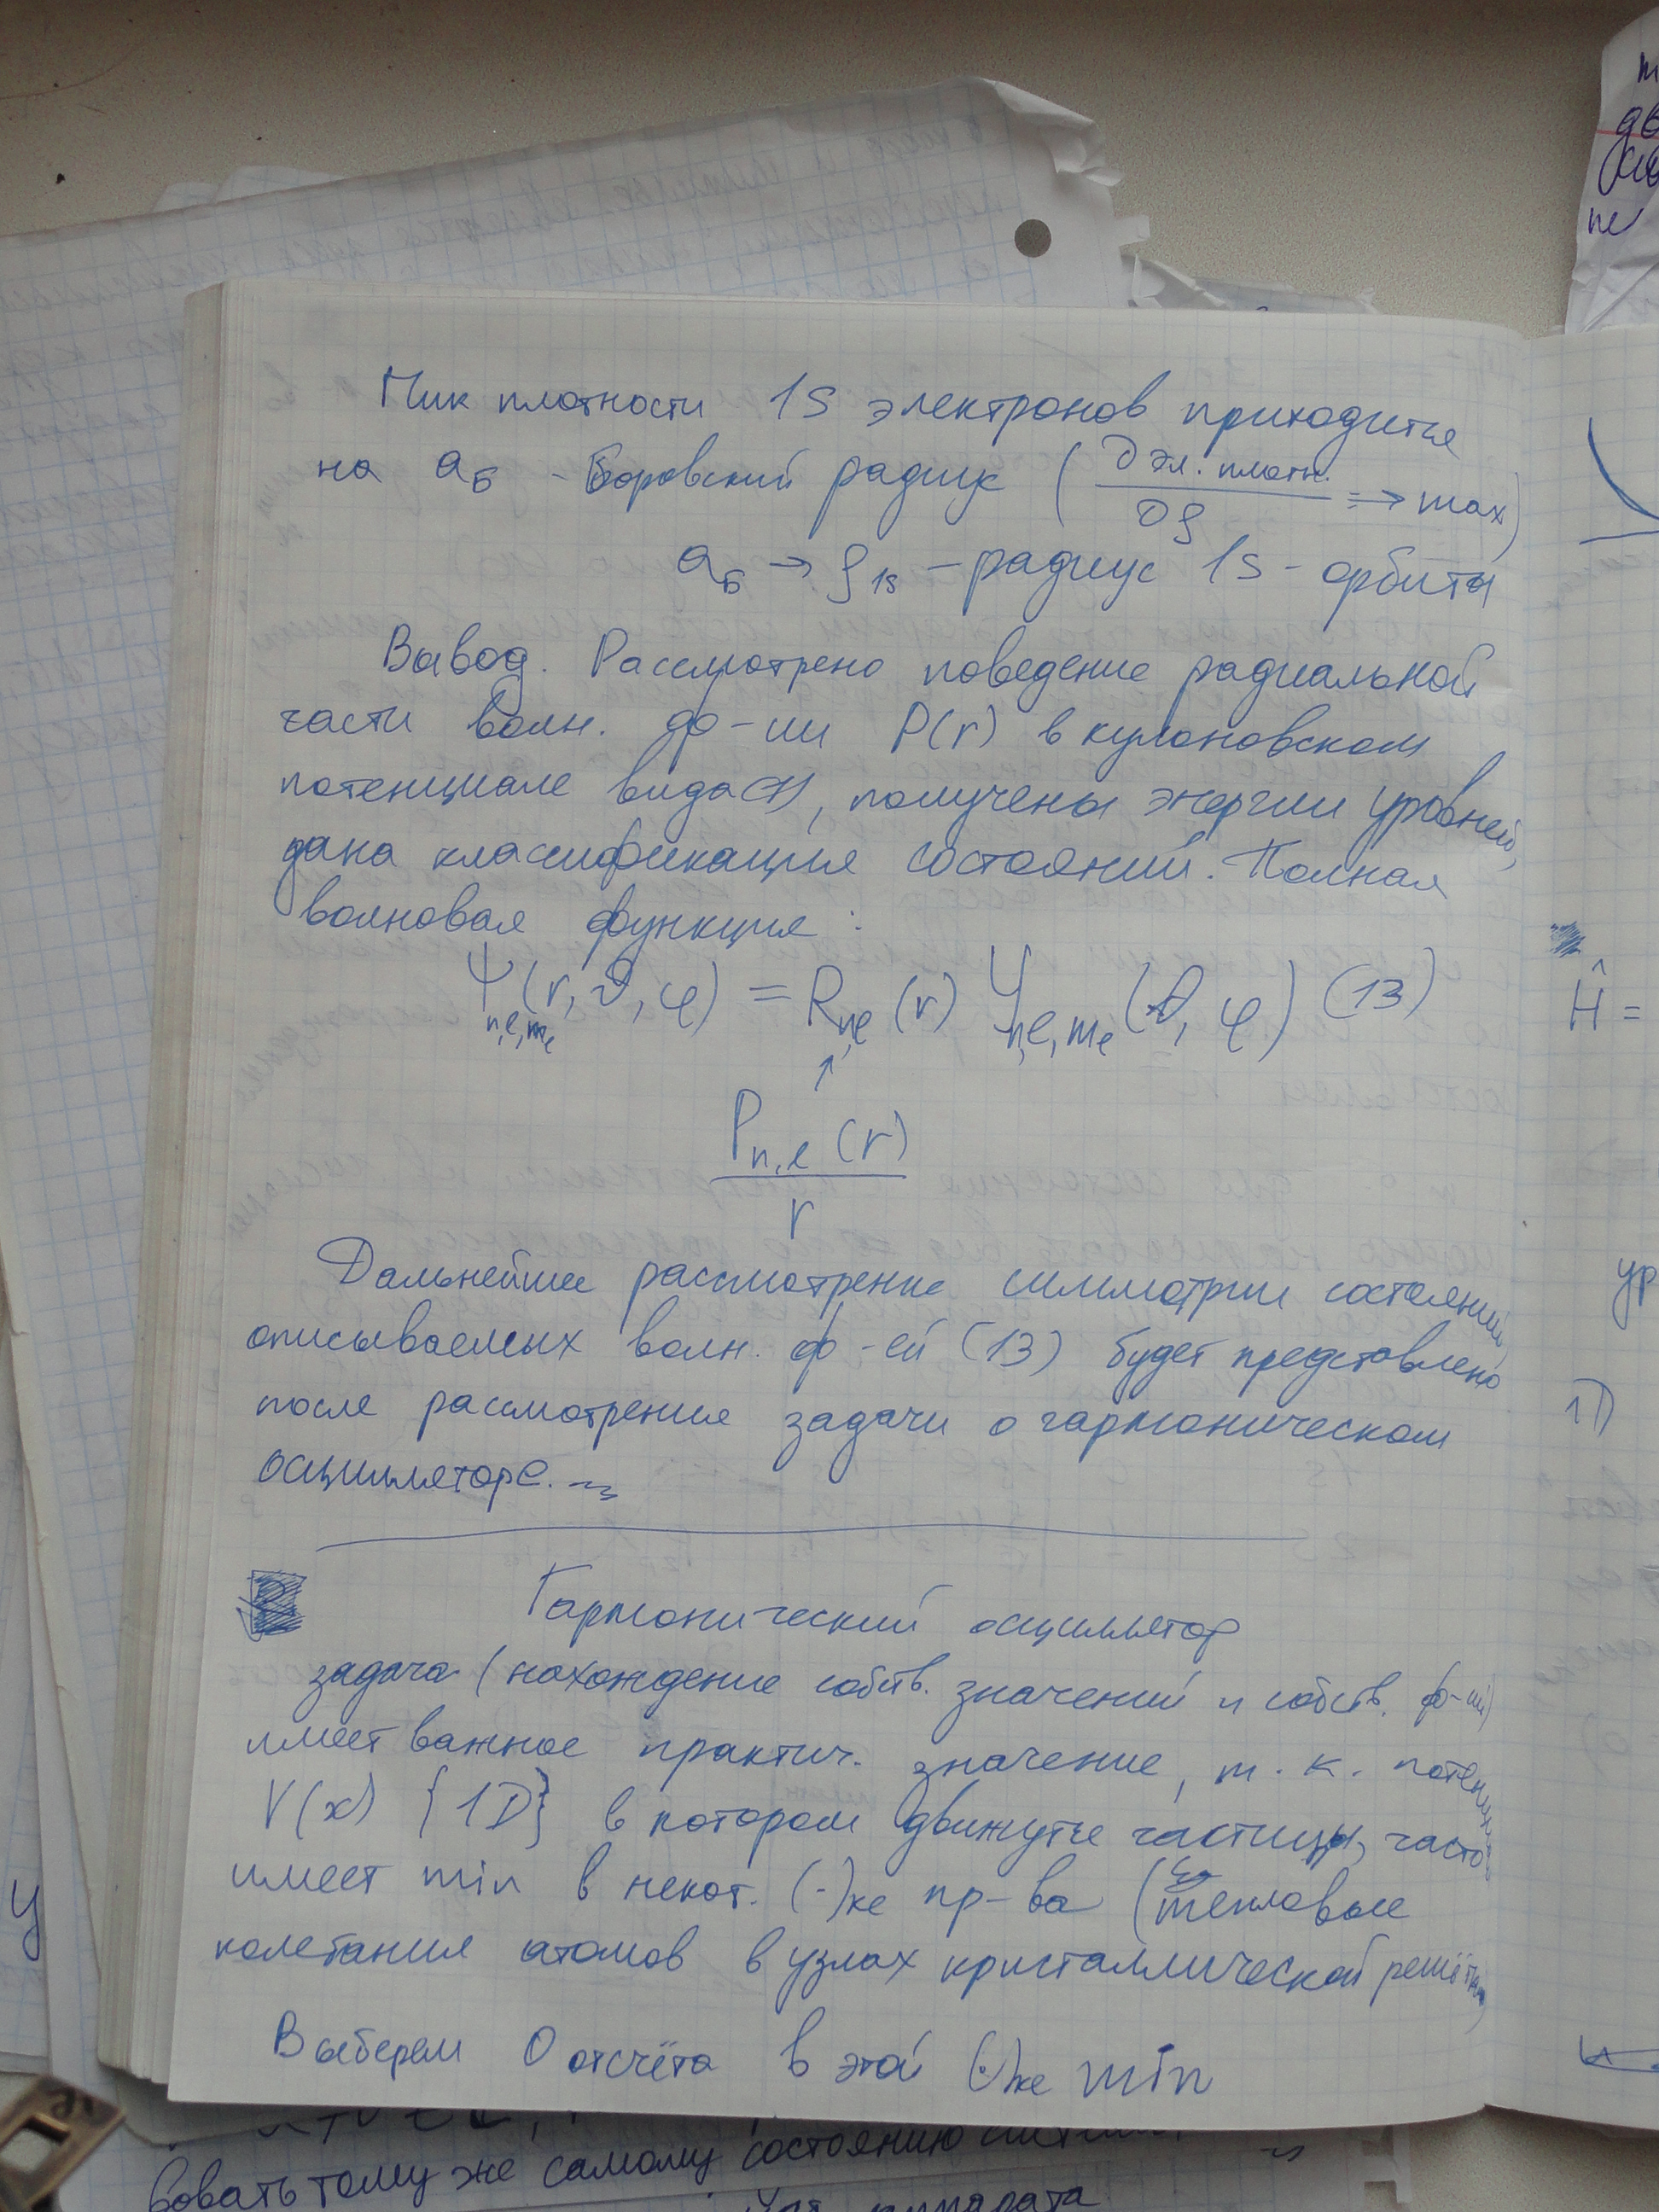 Пик плотности 1S электронов приходится
на aБ - Боровский радиус (∂ эл. плотн. / ∂ρ => max)
aБ → ρ1s - радиус 1S - орбиты
Вывод. Рассмотрено поведение радиальной
части волн. ф-ии P(r) в кулоновском
потенциале вида (1), получены энергии уровней,
дана классификация состояний. Полная
волновая функция :
Ψn,l,ml (r, ϑ, φ) = Rn,l (r) Yn,l,ml (ϑ, φ) (13)
↑
Pn,l (r)
r
Дальнейшее рассмотрение симметрии состояний,
описываемых волн. ф-ей (13) будет представлено
после рассмотрения задачи о гармоническом
осцилляторе.
Гармонический осциллятор
задача (нахождение собств. значений и собств. ф-ий)
имеет важное практич. значение, т. к. потенциал
V(x) {1D} в котором движутся частицы, часто
имеет min в некот. (·)ке пр-ва (тепловые
колебания атомов в узлах кристаллической решётки)
Выберем 0 отсчёта в этой (·)ке min
Ĥ =
ур
1)
У
вовать тому же самому состоянию
аппарата